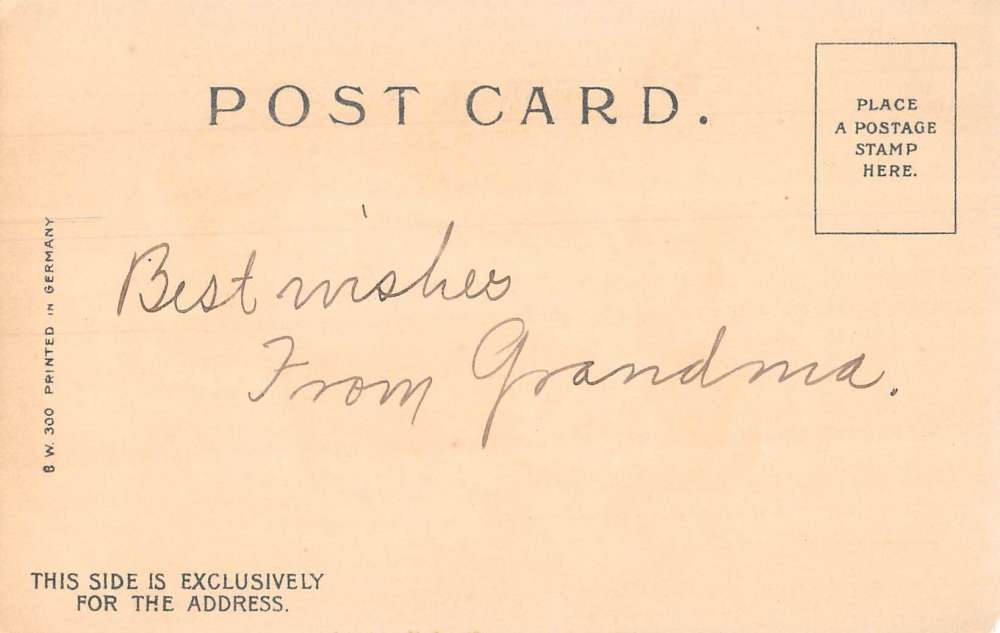 POST CARD.
PLACE
A POSTAGE
STAMP
HERE.
B.W. 300 PRINTED IN GERMANY
Best wishes
From Grandma.
THIS SIDE IS EXCLUSIVELY
FOR THE ADDRESS.